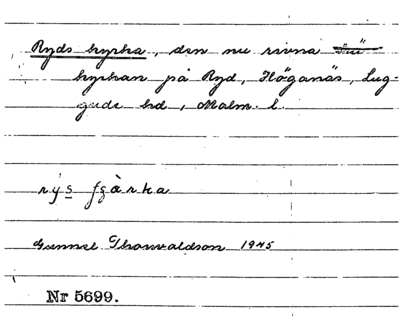 Ryds kyrka, den nu rivna
kyrkan på Ryd, Höganäs, Lug-
gude hd, Malm. l.
rýs fgàrka
Gunnel Thorvaldson 1945
Nr 5699.